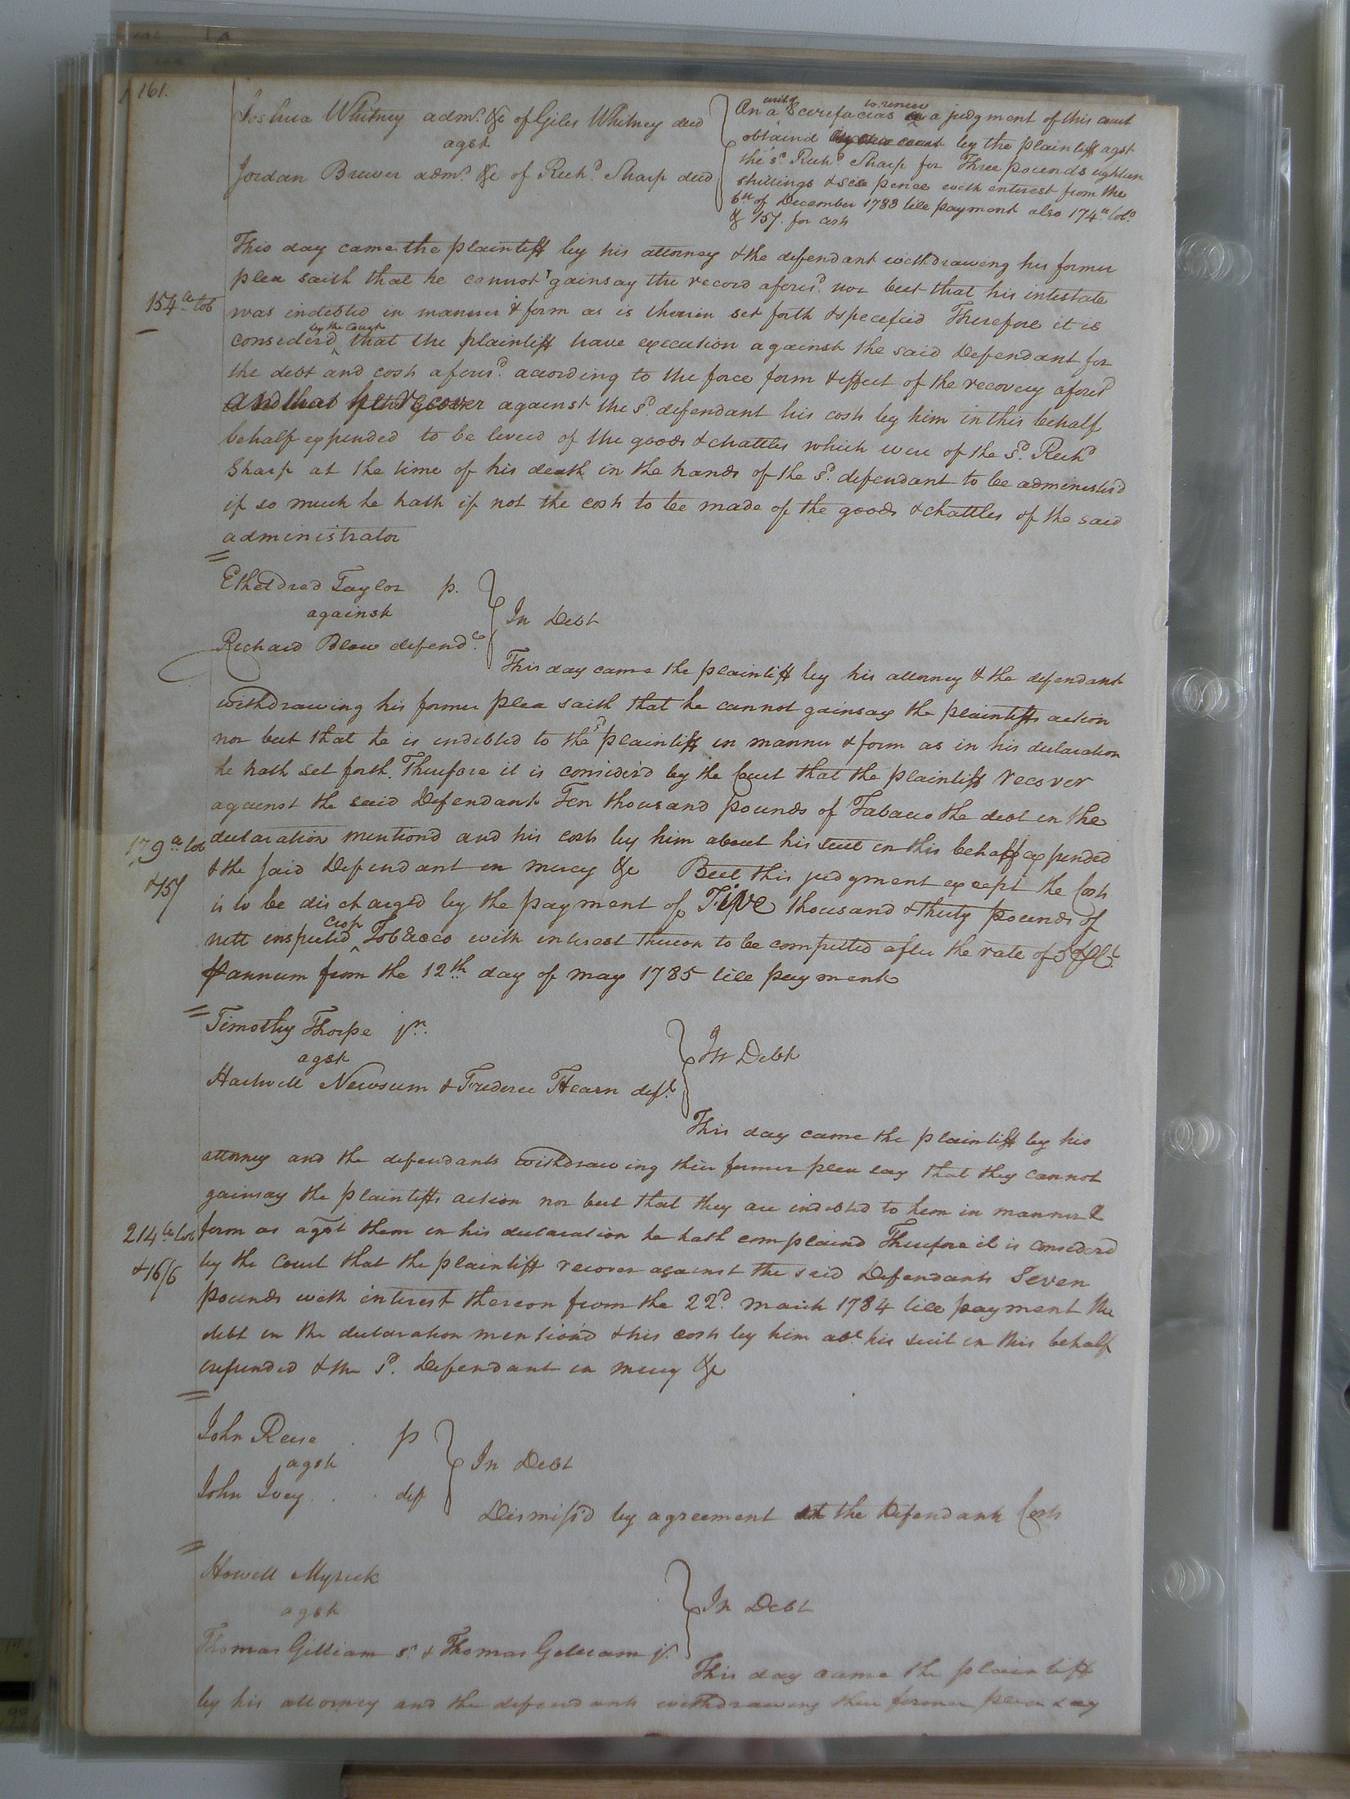 161.
Joshua Whitney adm.r &c of Giles Whitney decd
agst
Jordan Brewer adm.r &c of Rich.d Sharp decd
On a writ Scirefacias to renew a judgment of this court
obtaind by the plaintiff agst
the s.d Rich.d Sharp for Three pounds eighteen
shillings & six pence with interest from the
6th of December 1783 till payment also 174 lbs
& 15/. for costs
This day came the plaintiff by his attorney & the defendant withdrawing his former
plea saith that he cannot gainsay the record afores.d nor but that his intestate
154 lb tob
was indebted in manner & form as is therein set forth & specified Therefore it is
considerd by the Court that the plaintiff have execution against the said Defendant for
the debt and costs afores.d according to the force form & effect of the recovery afores.d
and that he recover against the s.d defendant his costs by him in this behalf
behalf expended to be levied of the goods & chattles which were of the s.d Rich.d
Sharp at the time of his death in the hands of the s.d defendant to be administerd
if so much he hath if not the costs to be made of the goods & chattles of the said
administrator
Etheldred Taylor p.
against
Richard Blow defend.t
In Debt
This day came the plaintiff by his attorney & the defendant
withdrawing his former plea saith that he cannot gainsay the plaintiffs action
nor but that he is indebted to the plaintiff in manner & form as in his declaration
he hath set forth. Therefore it is considerd by the Court that the plaintiff recover
against the said Defendant Ten thousand pounds of Tobacco the debt in the
179 lb tob
declaration mentiond and his costs by him about his suit in this behalf expended
& 15/
& the said Defendant in mercy &c But this judgment except the Costs
is to be discharged by the payment of Five thousand & thirty pounds of
nett inspected crop Tobacco with interest thereon to be computed after the rate of 5 p Ct.
p annum from the 12th day of may 1785 till payment
Timothy Thorpe jr.
agst
Hartwell Newsum & Frederic Hearn def.ts
In Debt
This day came the plaintiff by his
attorney and the defendants withdrawing their former plea say that they cannot
gainsay the plaintiffs action nor but that they are indebted to him in manner &
214 lb tob
form as agst them in his declaration he hath complaind Therefore it is considerd
& 16/6
by the Court that the plaintiff recover against the said Defendants Seven
pounds with interest thereon from the 22.d march 1784 till payment the
debt in the declaration mentiond & his costs by him abt his suit in this behalf
expended & the s.d Defendant in mercy &c
John Reese p
agst
John Ivey def
In Debt
Dismiss'd by agreement at the Defendants Costs
Howell Myrick
agst
Thomas Gilliam s.r & Thomas Gilliam jr.
In Debt
This day came the plaintiff
by his attorney and the defendants withdrawing their former plea say